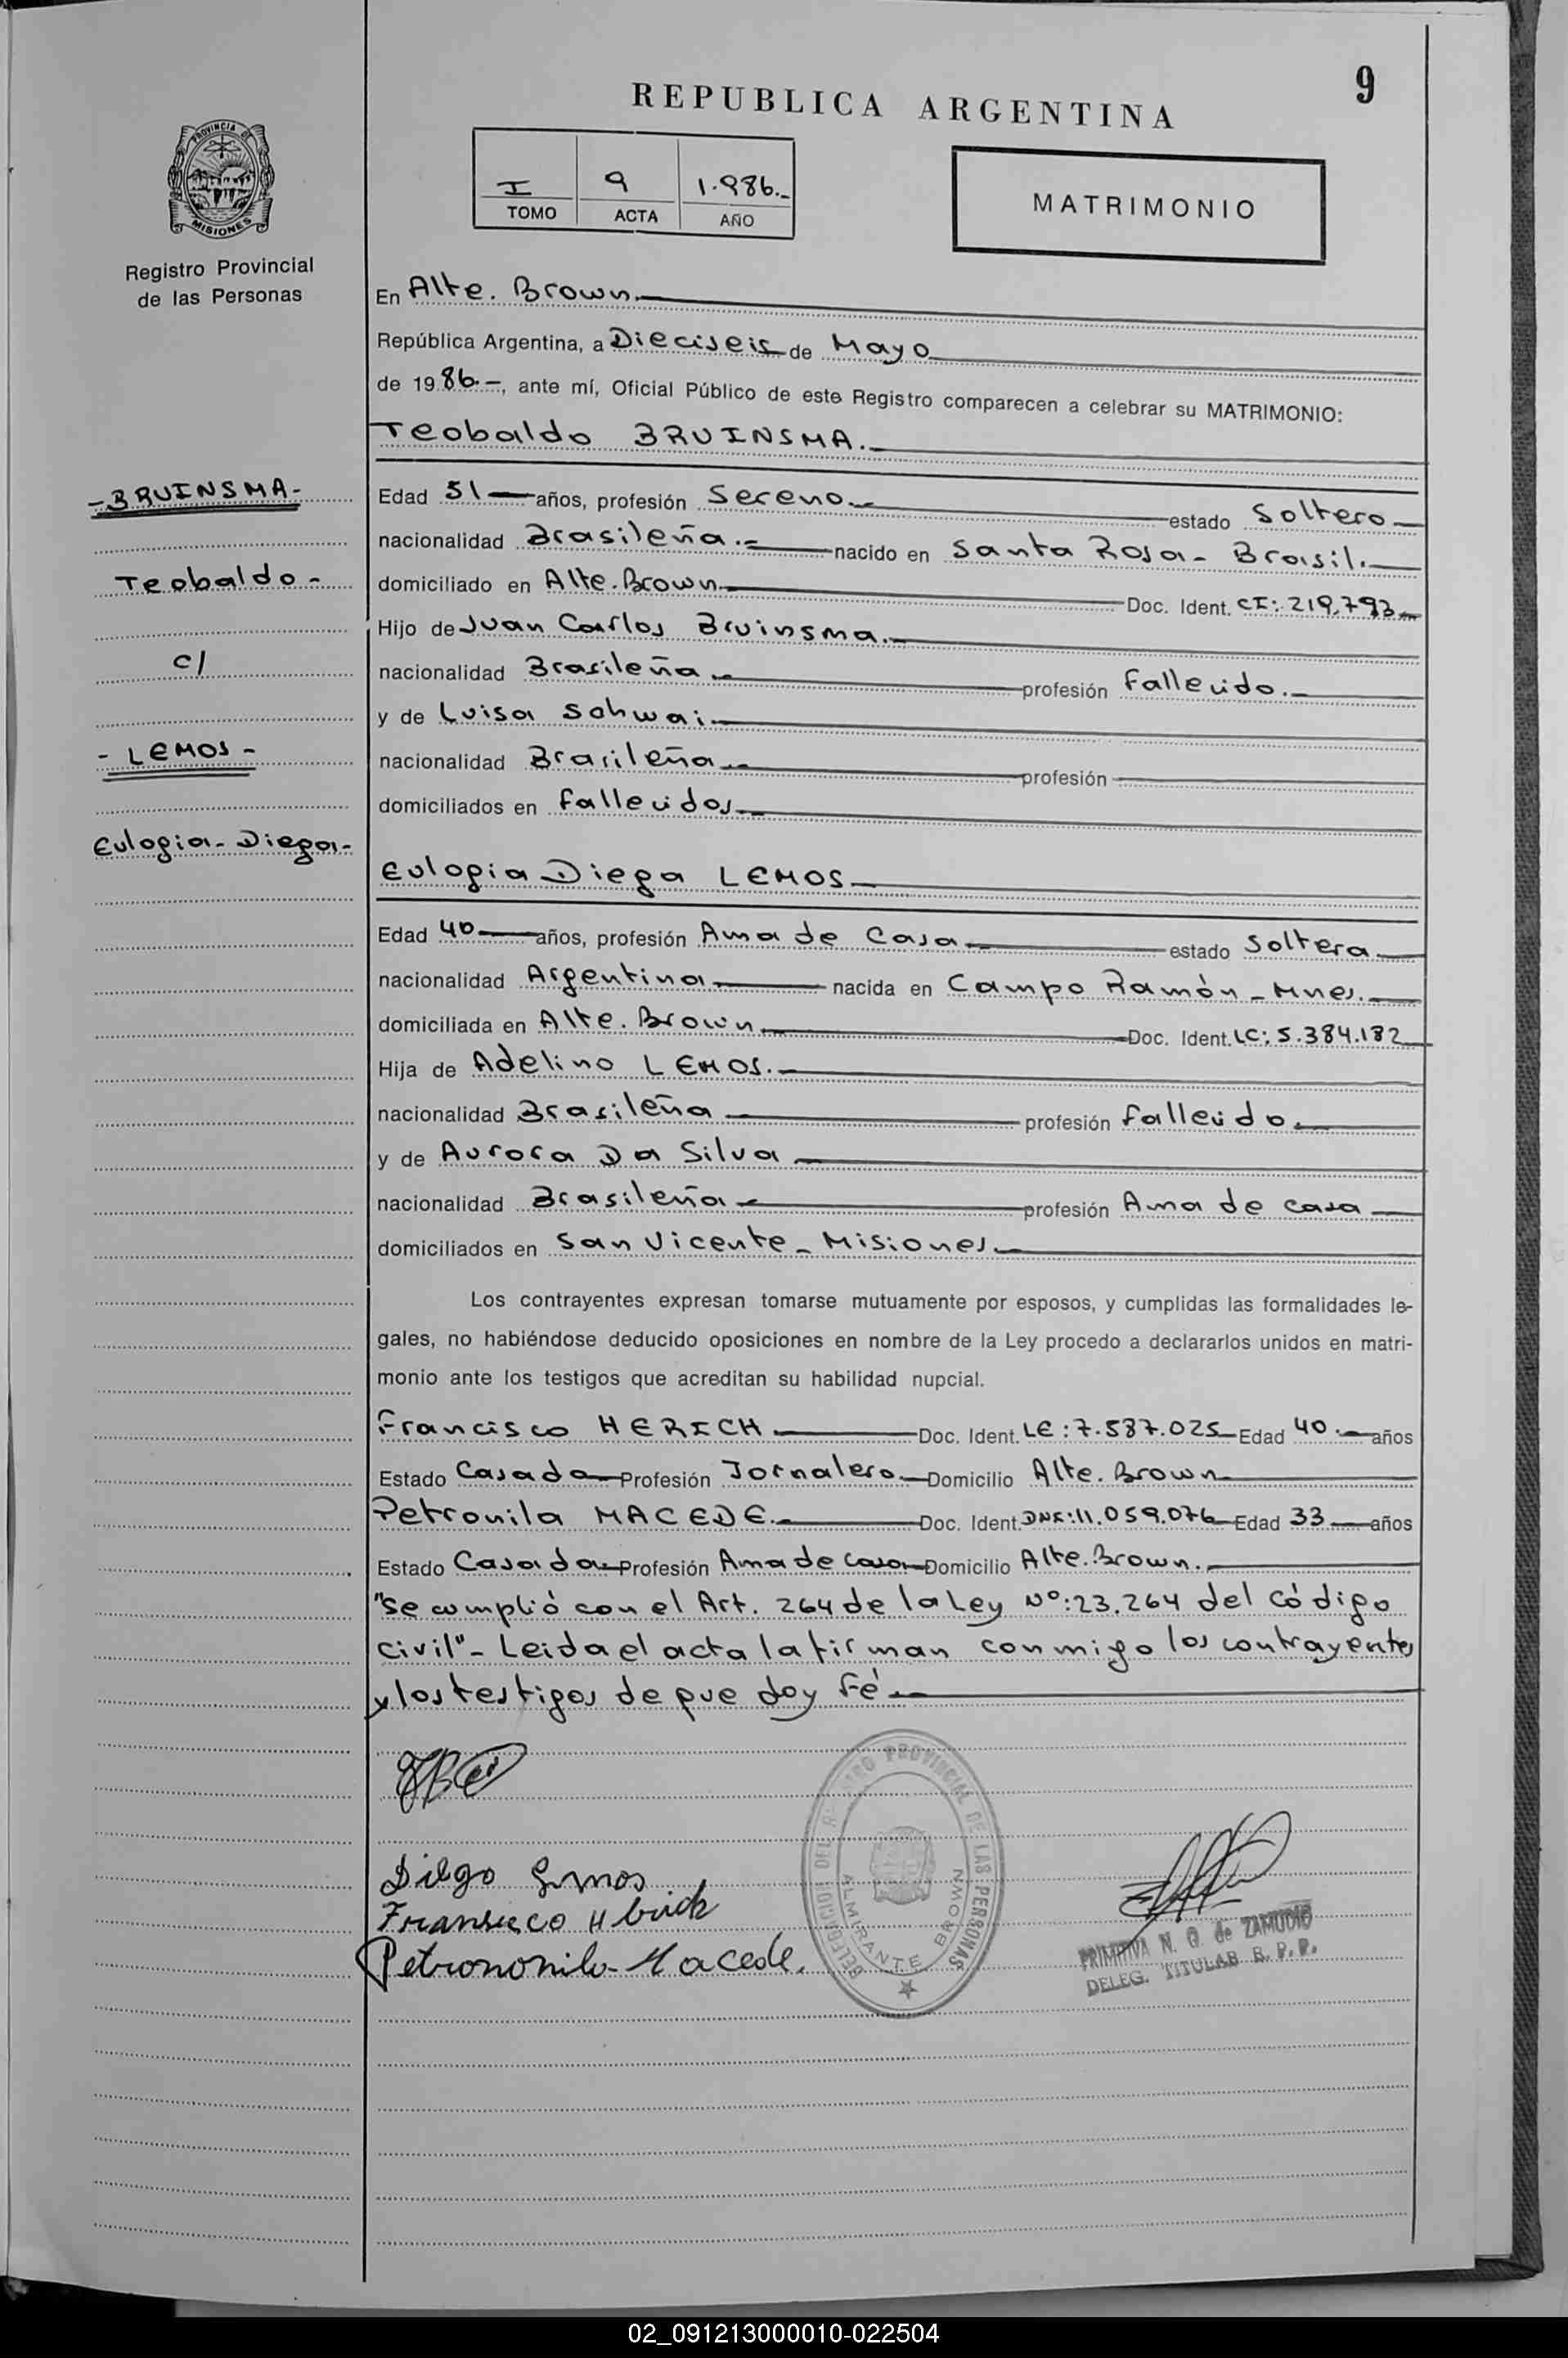 9
REPUBLICA ARGENTINA
I 9 1.986.-
TOMO ACTA AÑO
MATRIMONIO
PROVINCIA DE
MISIONES
Registro Provincial
de las Personas
En Alte. Brown.
República Argentina, a Dieciseis de Mayo
de 19 86.-, ante mí, Oficial Público de este Registro comparecen a celebrar su MATRIMONIO:
Teobaldo BRUINSMA.
- BRUINSMA -
Edad 51 años, profesión Sereno.- estado Soltero
nacionalidad Brasileña.- nacido en Santa Rosa - Brasil.
Teobaldo -
domiciliado en Alte. Brown Doc. Ident. CI: 219.793
Hijo de Juan Carlos Bruinsma.
c/
nacionalidad Brasileña profesión fallecido.-
y de Luisa Sohwai
- LEMOS -
nacionalidad Brasileña profesión
domiciliados en fallecidos
Eulogia - Diega -
Eulogia Diega LEMOS
Edad 40 años, profesión Ama de Casa estado Soltera
nacionalidad Argentina nacida en Campo Ramón - Mnes.
domiciliada en Alte. Brown Doc. Ident. LC: 5.384.182
Hija de Adelino LEMOS.
nacionalidad Brasileña profesión fallecido
y de Aurora Da Silva
nacionalidad Brasileña profesión Ama de casa
domiciliados en San Vicente - Misiones
Los contrayentes expresan tomarse mutuamente por esposos, y cumplidas las formalidades le-
gales, no habiéndose deducido oposiciones en nombre de la Ley procedo a declararlos unidos en matri-
monio ante los testigos que acreditan su habilidad nupcial.
Francisco HERICH Doc. Ident. LE: 7.587.025 Edad 40.- años
Estado Casado Profesión Jornalero Domicilio Alte. Brown
Petronila MACEDE. Doc. Ident. DNI: 11.059.076 Edad 33 años
Estado Casada Profesión Ama de casa Domicilio Alte. Brown.
"Se cumplió con el Art. 264 de la Ley Nº: 23.264 del Código
Civil" - Leida el acta la firman conmigo los contrayentes
y los testigos de que doy Fé
Diego Lemos
Fransisco Herich
Petrononila Macede.
DELEGACION DEL REGISTRO PROVINCIAL DE LAS PERSONAS
ALMIRANTE BROWN
PRIMITIVA N. G. de ZAMUDIO
DELEG. TITULAR R. P. P.
02_091213000010-022504